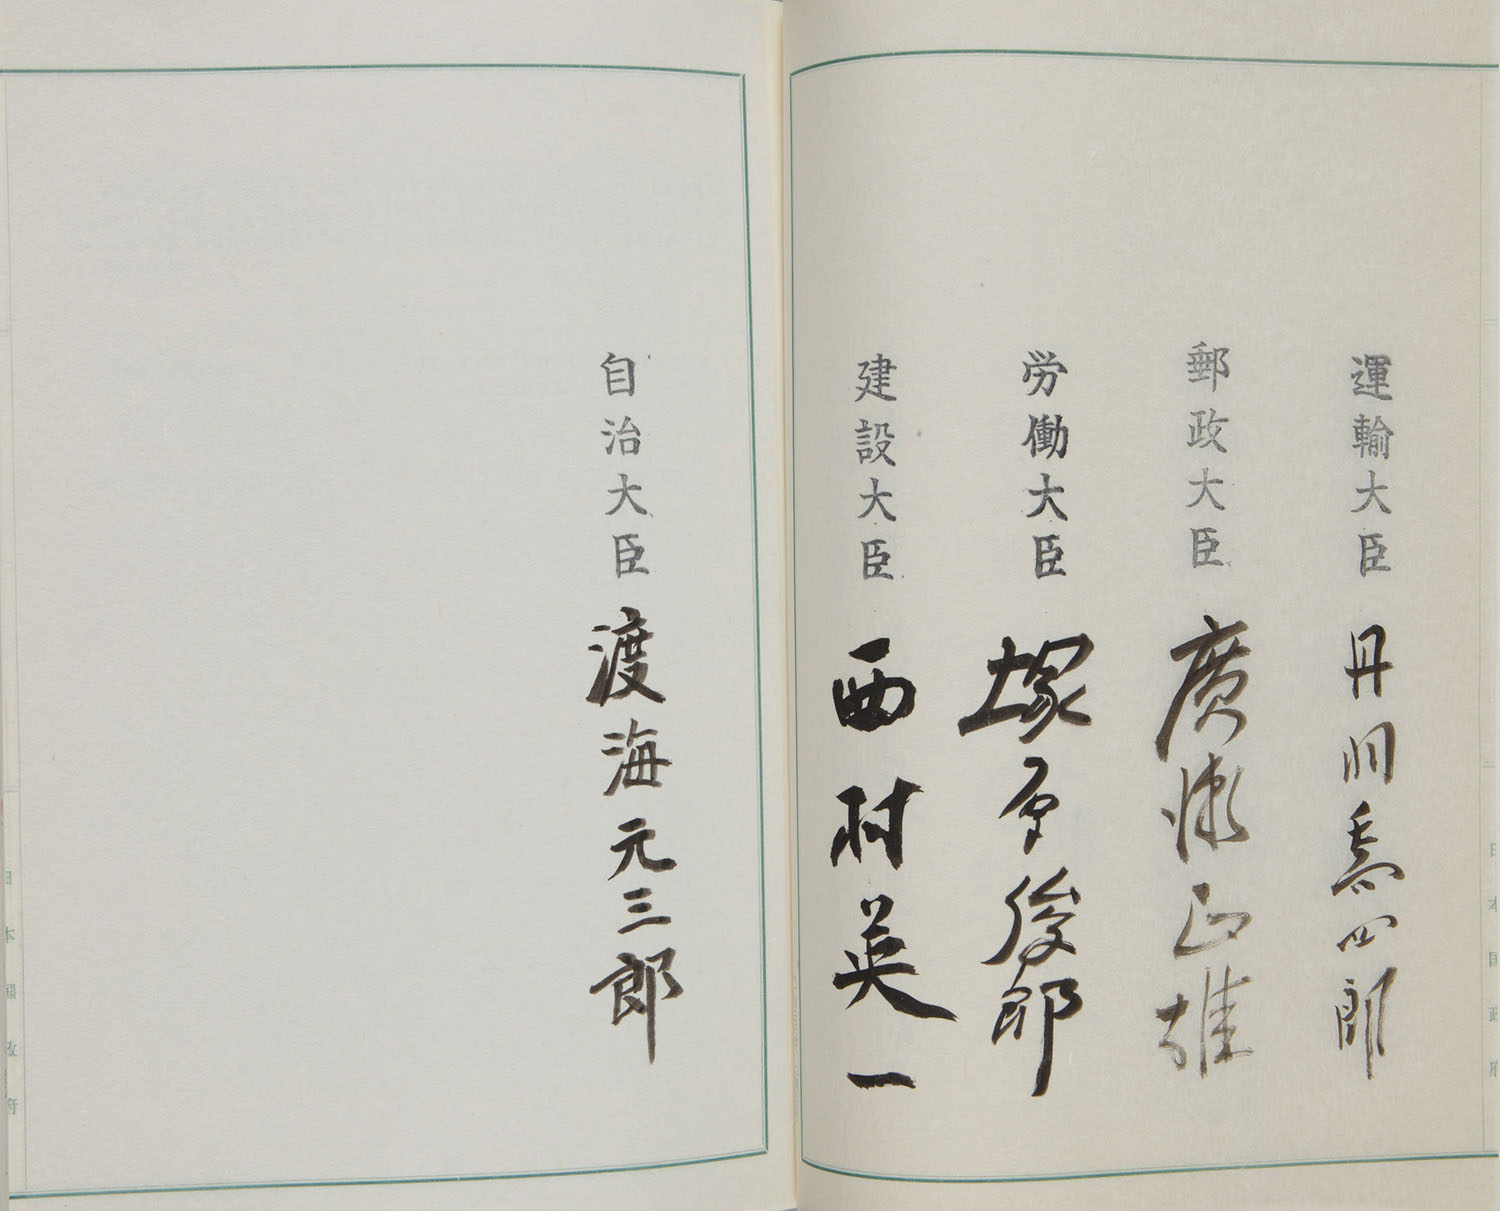 運輸大臣 丹羽喬四郎
郵政大臣 廣瀬正雄
労働大臣 塚原俊郎
建設大臣 西村英一
自治大臣 渡海元三郎
日本国政府
日本国政府